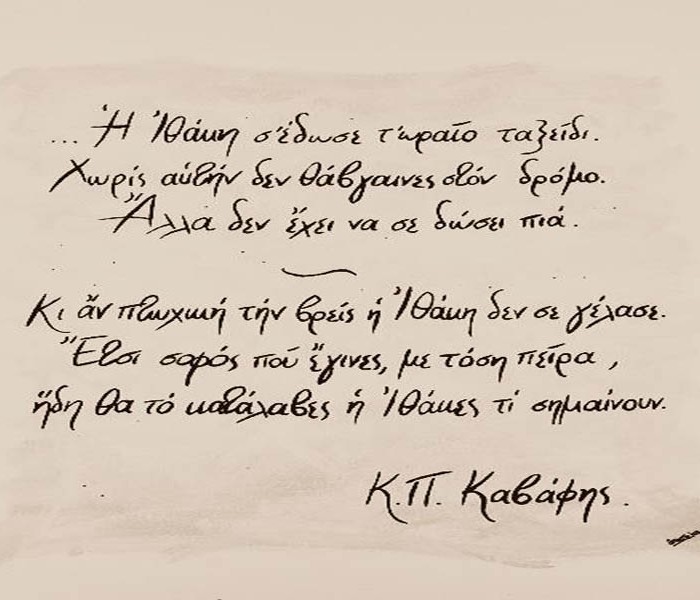 ... Ἡ Ἰθάκη σ'έδωσε τ'ὡραῖο ταξεῖδι.
Χωρίς αὐτήν δεν θἄβγαινες στόν δρόμο.
Ἄλλα δεν ἔχει να σε δώσει πιά.
Κι ἄν πτωχική τήν βρεῖς ἡ Ἰθάκη δεν σε γέλασε.
Ἔτσι σοφός πού ἔγινες, με τόση πεῖρα,
ἤδη θα τό κατάλαβες ἡ Ἰθάκες τί σημαίνουν.
Κ.Π. Καβάφης.